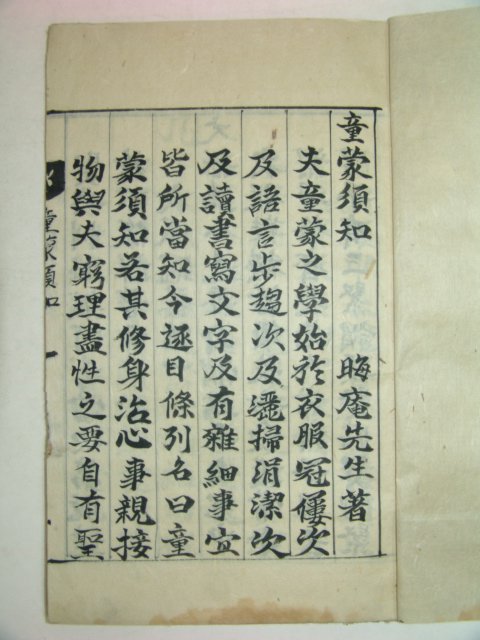 童蒙須知 晦庵先生著
夫童蒙之學始於衣服冠屨次
及語言步趨次及灑掃涓潔次
及讀書寫文字及有雜細事宜
皆所當知今逐目條列名曰童
蒙須知若其修身治心事親接
物與夫窮理盡性之要自有聖
童蒙須知 一